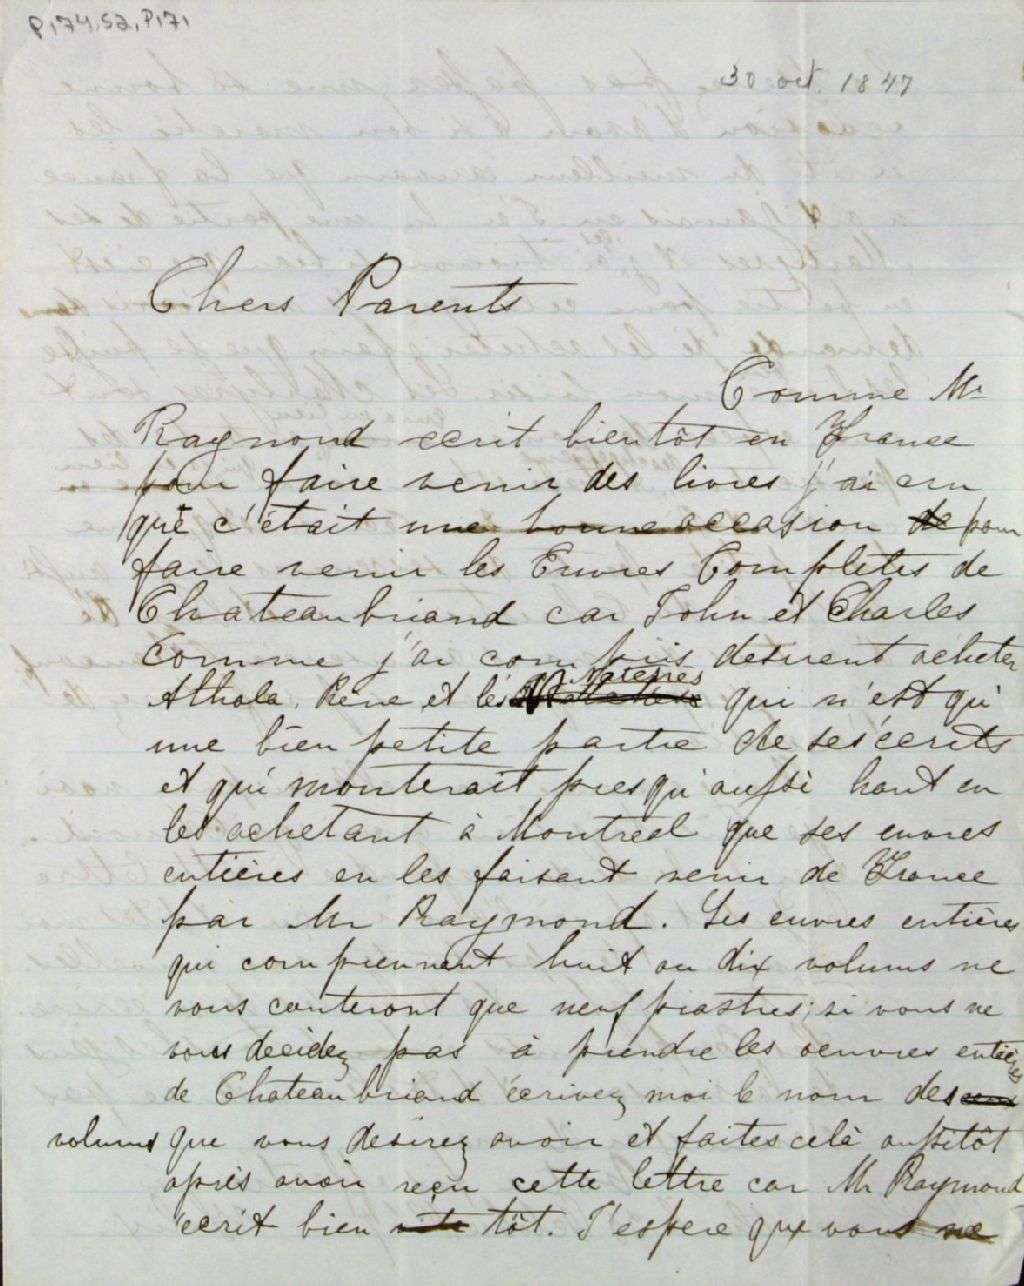 P174,S2,P171
30 oct. 1847
Chers Parents
Comme Mr
Raymond ecrit bientôt en France
pour faire venir des livres j'ai cru
que c'était une bonne occasion de pour
faire venir les Euvres Complètes de
Chateaubriand car John et Charles
comme j'ai compris desirent acheter
Athala, Rene et les Natchés
qui n'est qu'
une bien petite partie de ses écrits
et qui monterait presqu'aussi haut en
les achetant à Montreal que ses euvres
entières en les faisant venir de France
par Mr Raymond. Les euvres entières
qui comprennent huit ou dix volums ne
vous couteront que neuf piastres; si vous ne
vous decidez pas à prendre les oeuvres entières
de Chateaubriand écrivez moi le nom des
volums que vous desirez avoir et faites celà aussitôt
après avoir reçu cette lettre car Mr Raymond
écrit bien vite tôt. J'espere que vous ne